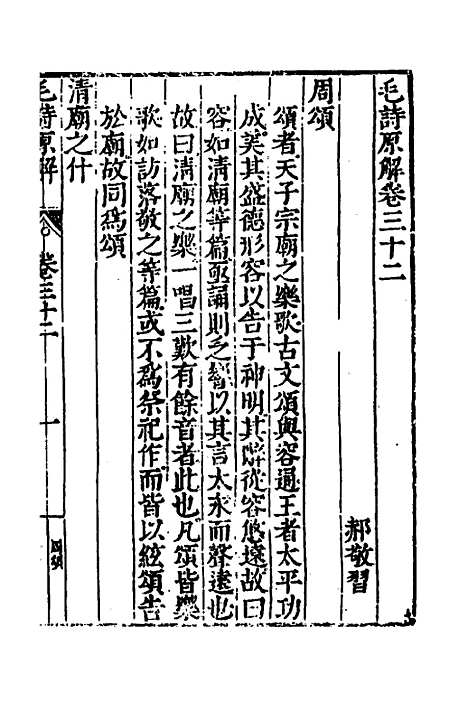 毛詩原解卷三十二
郝敬習
周頌
頌者天子宗廟之樂歌古文頌與容通王者太平功
成美其盛德形容以告于神明其辭從容悠遠故曰
容如清廟等篇亟誦則乏響以其言太永而聲遠也
故曰清廟之樂一唱三歎有餘音者此也凡頌皆樂
歌如訪落敬之等篇或不爲祭祀作而皆以絃頌告
於廟故同爲頌
清廟之什
毛詩原解
卷三十二
一
周頌